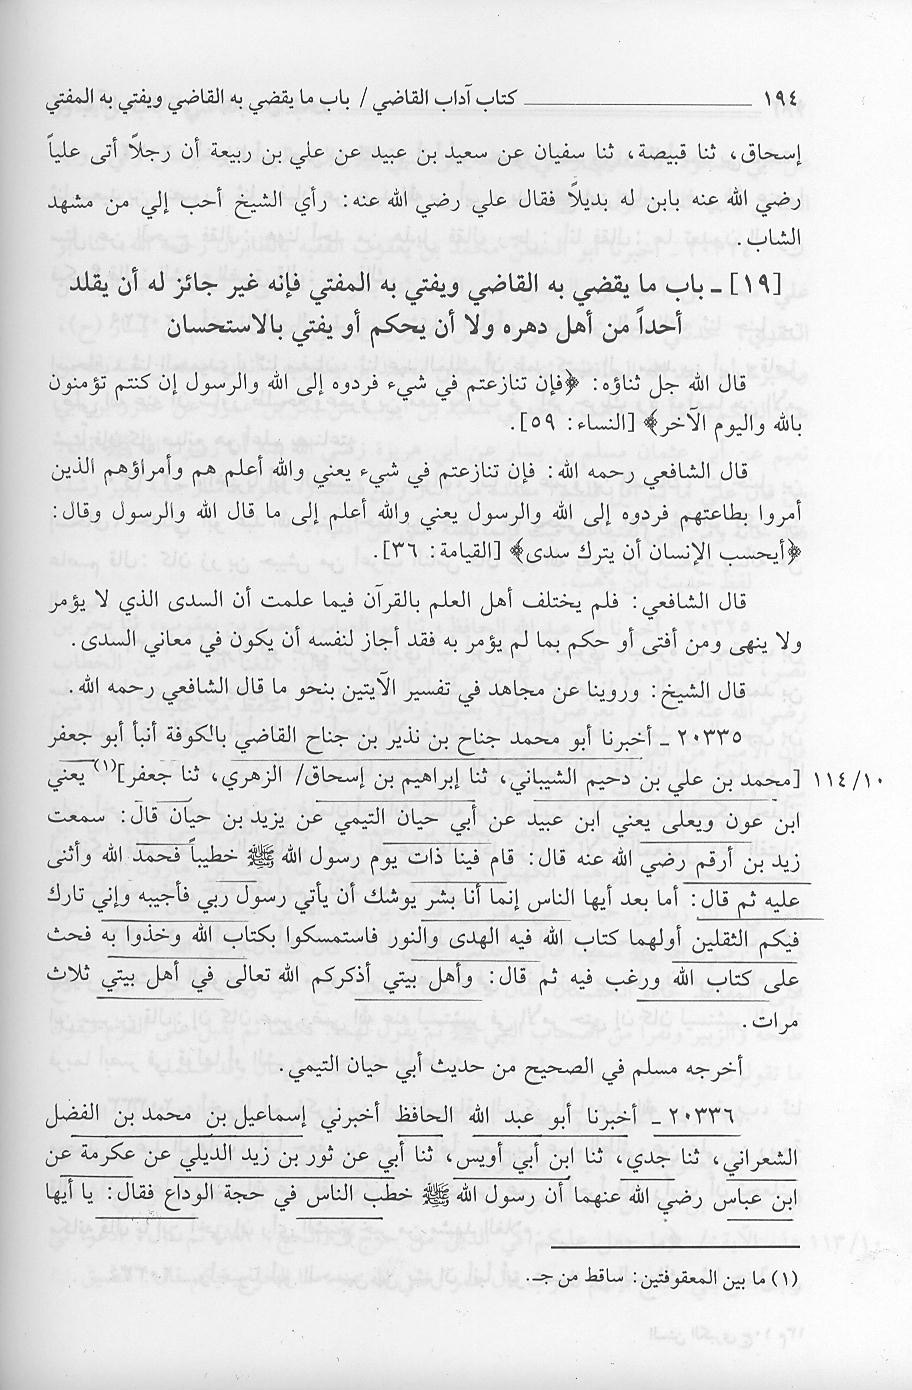 ١٩٤ كتاب آداب القاضي / باب ما يقضي به القاضي ويفتي به المفتي
إسحاق، ثنا قبيصة، ثنا سفيان عن سعيد بن عبيد عن علي بن ربيعة أن رجلاً أتى علياً
رضي الله عنه بابن له بديلاً فقال علي رضي الله عنه: رأي الشيخ أحب إلي من مشهد
الشاب.
[١٩] ـ باب ما يقضي به القاضي ويفتي به المفتي فإنه غير جائز له أن يقلد
أحداً من أهل دهره ولا أن يحكم أو يفتي بالاستحسان
قال الله جل ثناؤه: ﴿فإن تنازعتم في شيء فردوه إلى الله والرسول إن كنتم تؤمنون
بالله واليوم الآخر﴾ [النساء: ٥٩].
قال الشافعي رحمه الله: فإن تنازعتم في شيء يعني والله أعلم هم وأمراؤهم الذين
أمروا بطاعتهم فردوه إلى الله والرسول يعني والله أعلم إلى ما قال الله والرسول وقال:
﴿أيحسب الإنسان أن يترك سدى﴾ [القيامة: ٣٦].
قال الشافعي: فلم يختلف أهل العلم بالقرآن فيما علمت أن السدى الذي لا يؤمر
ولا ينهى ومن أفتى أو حكم بما لم يؤمر به فقد أجاز لنفسه أن يكون في معاني السدى.
قال الشيخ: وروينا عن مجاهد في تفسير الآيتين بنحو ما قال الشافعي رحمه الله.
٢٠٣٣٥ ـ أخبرنا أبو محمد جناح بن نذير بن جناح القاضي بالكوفة أنبأ أبو جعفر
١١٤/١٠ [محمد بن علي بن دحيم الشيباني، ثنا إبراهيم بن إسحاق/ الزهري، ثنا جعفر](١) يعني
ابن عون ويعلى يعني ابن عبيد عن أبي حيان التيمي عن يزيد بن حيان قال: سمعت
زيد بن أرقم رضي الله عنه قال: قام فينا ذات يوم رسول الله ﷺ خطيباً فحمد الله وأثنى
عليه ثم قال: أما بعد أيها الناس إنما أنا بشر يوشك أن يأتي رسول ربي فأجيبه وإني تارك
فيكم الثقلين أولهما كتاب الله فيه الهدى والنور فاستمسكوا بكتاب الله وخذوا به فحث
على كتاب الله ورغب فيه ثم قال: وأهل بيتي أذكركم الله تعالى في أهل بيتي ثلاث
مرات.
أخرجه مسلم في الصحيح من حديث أبي حيان التيمي.
٢٠٣٣٦ ـ أخبرنا أبو عبد الله الحافظ أخبرني إسماعيل بن محمد بن الفضل
الشعراني، ثنا جدي، ثنا ابن أبي أويس، ثنا أبي عن ثور بن زيد الديلي عن عكرمة عن
ابن عباس رضي الله عنهما أن رسول الله ﷺ خطب الناس في حجة الوداع فقال: يا أيها
(١) ما بين المعقوفتين: ساقط من جـ.